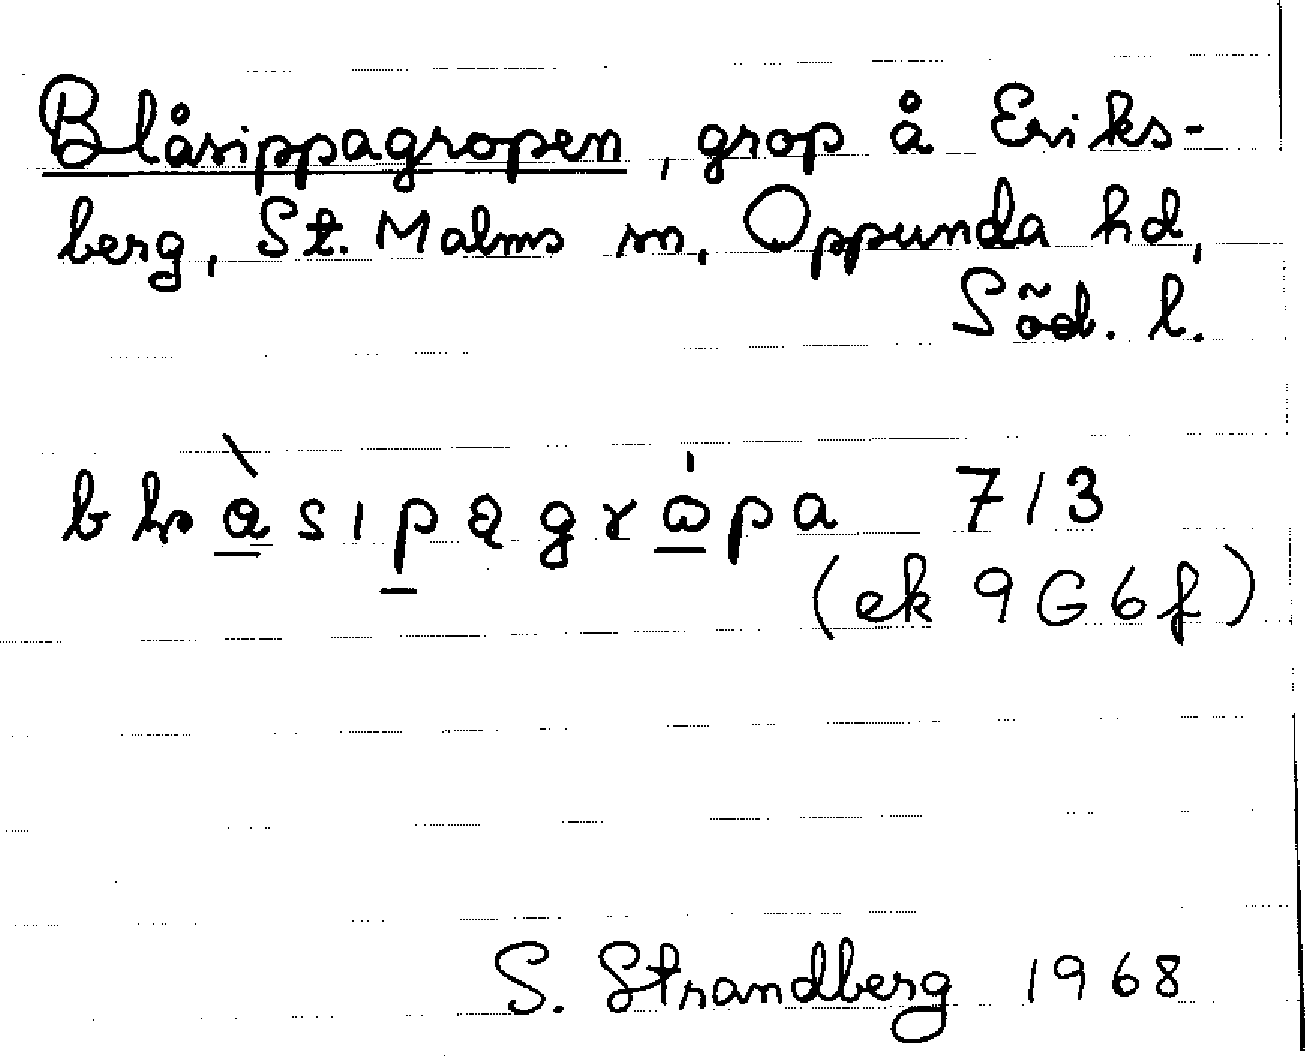 Blåsippagropen, grop å Eriks-
berg, St. Malms sn, Oppunda hd,
Söd. l.
713
(ek 9G6f)
S. Strandberg 1968